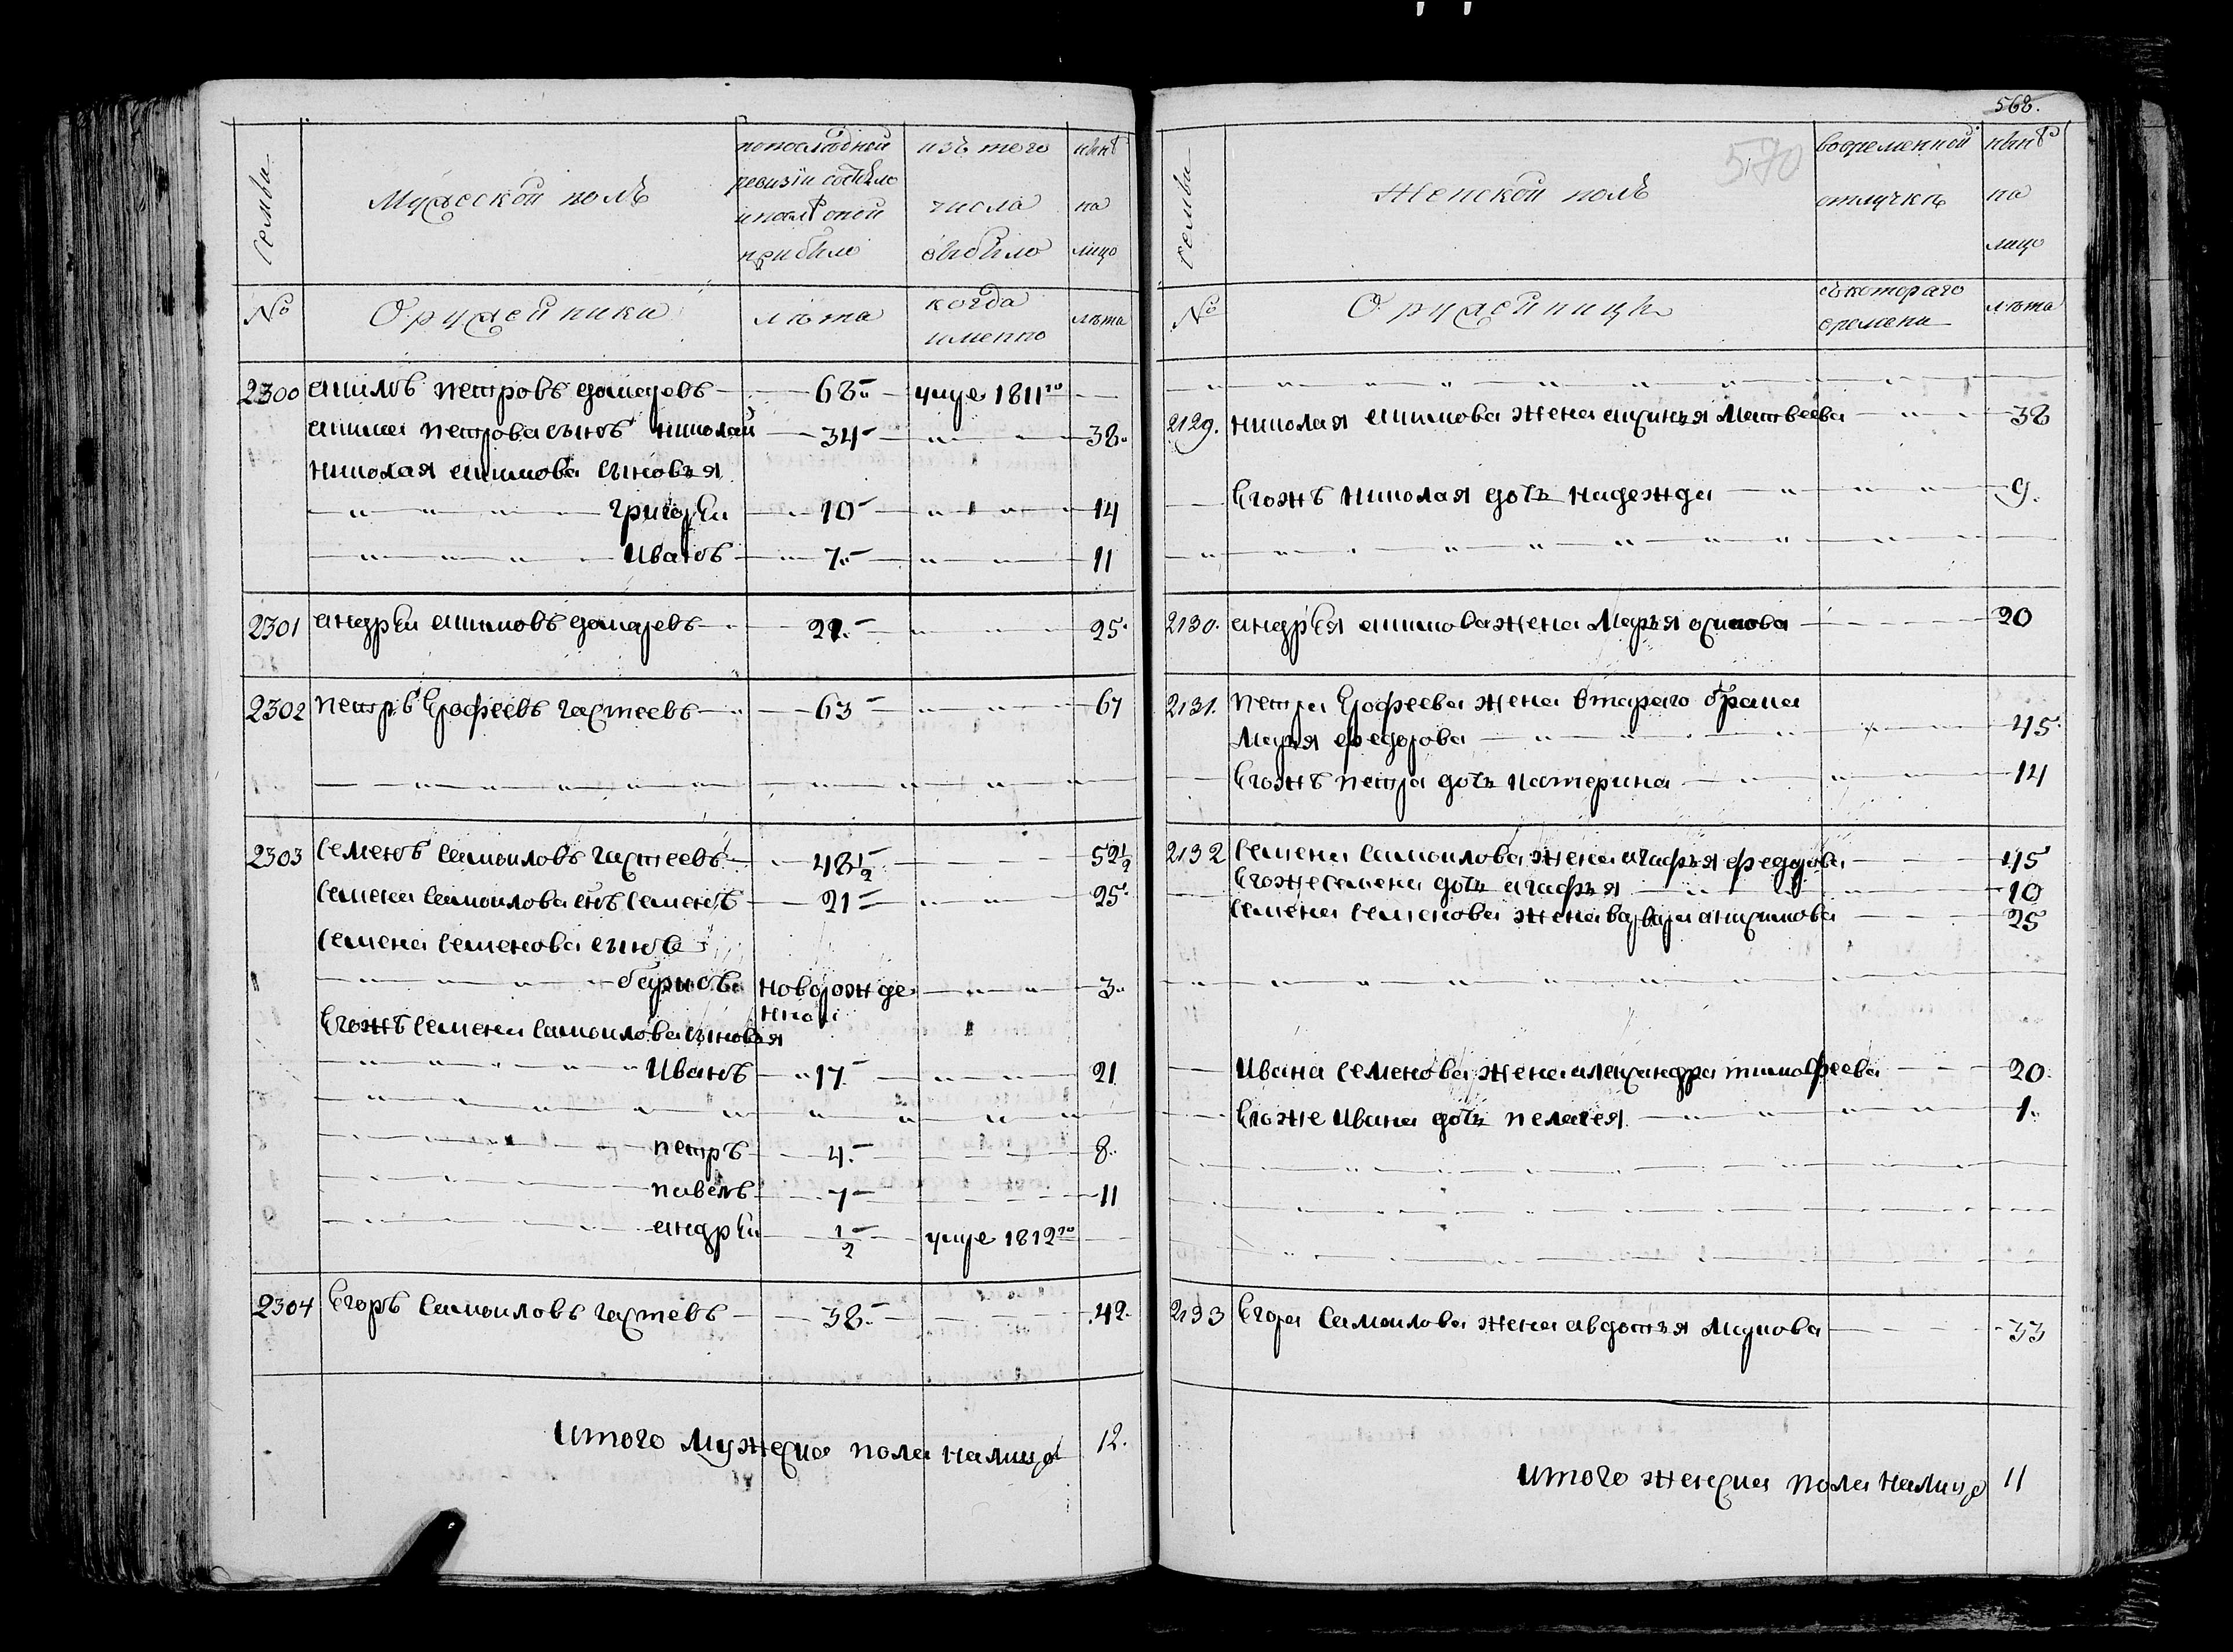 семьи
Мужеской полъ
попоследней
ревизіи состояло
и послѣ оной
прибыло
изъ того
числа
выбыло
нынѣ
на
лицо
№
Оружейники
лѣта
когда
именно
лѣта
2300 екимъ петровъ 68 умре 1811го
екима петрова сынъ николай 34 38
николая екимова сыновья
григорѣй 10 14
иванъ 7 11
2301 андрѣй екимовъ 25
2302 петръ Ерофеевъ гастеевъ 63 67
2303 семенъ самоиловъ гастеевъ 48½ 52½
семена самоилова снъ семенъ 21 25
семена семенова сынъ
новорожде 3
нной
Егожъ семена самоилова сыновья
иванъ 17 21
петръ 4 8
павелъ 7 11
андрѣй ½ умре 1812го
2304 Егоръ самоиловъ гастевъ 38 42
итого мужеска пола налицо 12.
568.
570
семьи
Женской полъ
вовременной
отлучкѣ
нынѣ
на
лицо
№
Оружейницы
съкотораго
времени
лѣта
2129. николая екимова жена аксинья матвеева 38
Егожъ николая дочь надежда 9.
2130. андрѣя екимова жена марья осипова 20
2131. петра Ерофеева жена втараго брака
марья федорова 45
Егожъ петра дочь катерина 14
2132 семена самоилова жена агафья федорова 45
Егоже семена дочь агафья 10
семена семенова жена варвара 25
ивана семенова жена александра тимофеева 20
Егоже ивана дочь пелагея 1
2133 Егора самоилова жена авдотья маркова 33
итого женска пола налицо 11